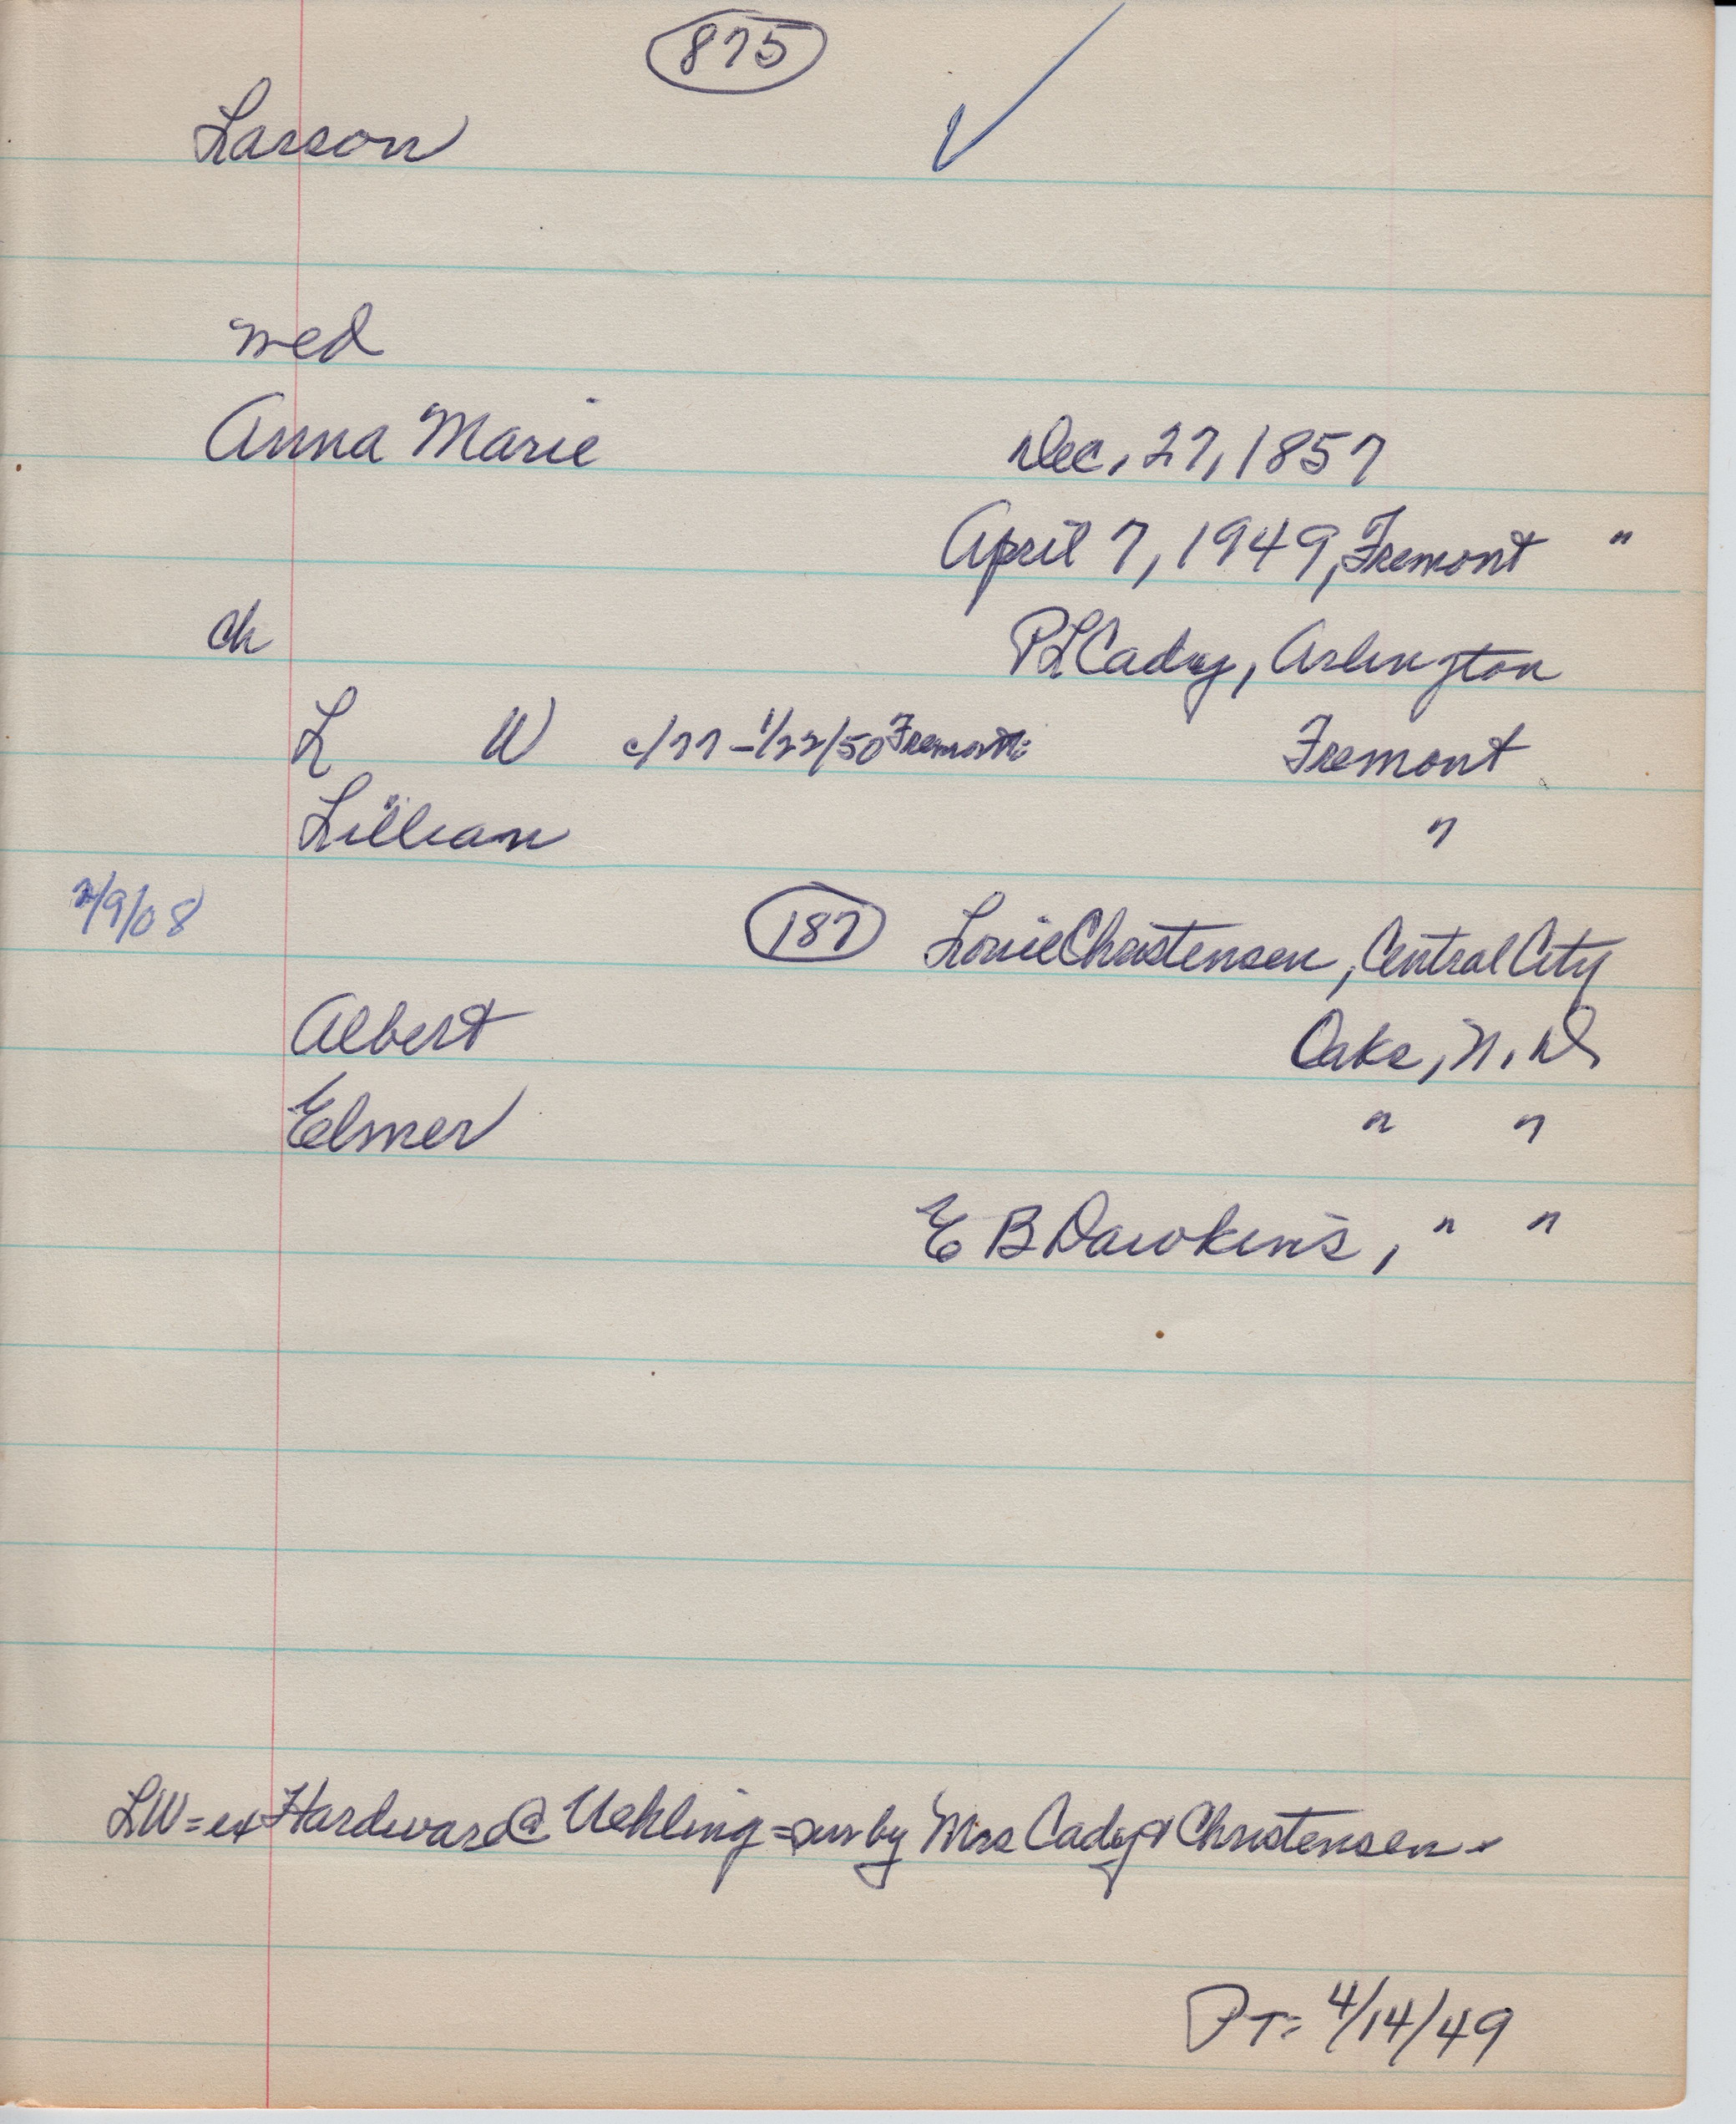 875
Larson
wed
Anna Marie Dec, 27, 1857
April 7, 1949, Fremont "
ch P L Cady, Arlington
L W c/77 - 1/22/50 Fremont Fremont
Lillian "
2/9/08 187 Louie Christensen, Central City
Albert Oaks, N. D.
Elmer " "
E B Dawkins, " "
LW = ex Hardware @ Uehling = sur by Mrs Cady & Christensen -
PT = 4/14/49